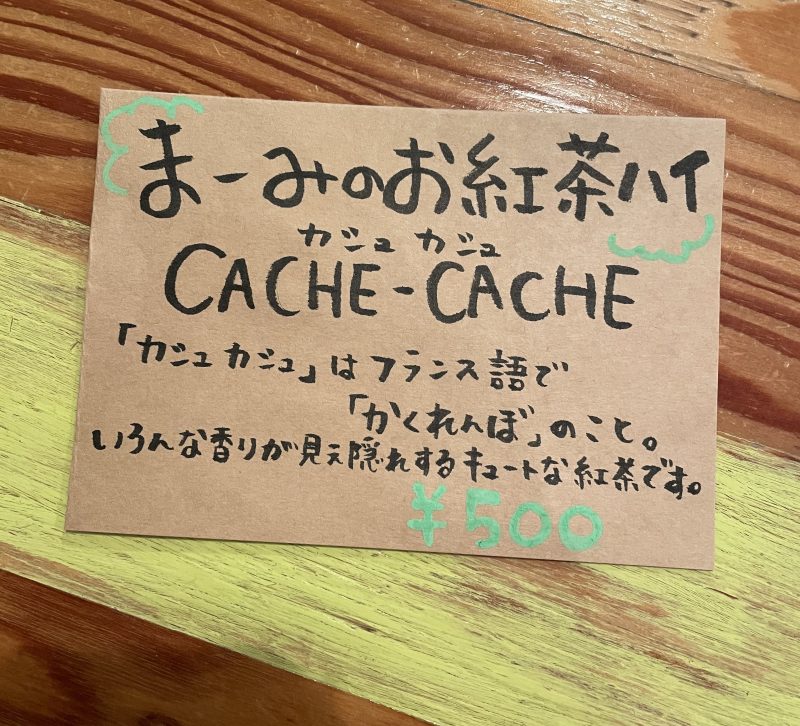 まーみのお紅茶ハイ
カシュ カシュ
CACHE-CACHE
「カシュカシュ」はフランス語で
「かくれんぼ」のこと。
いろんな香りが見え隠れするキュートな紅茶です。
¥500